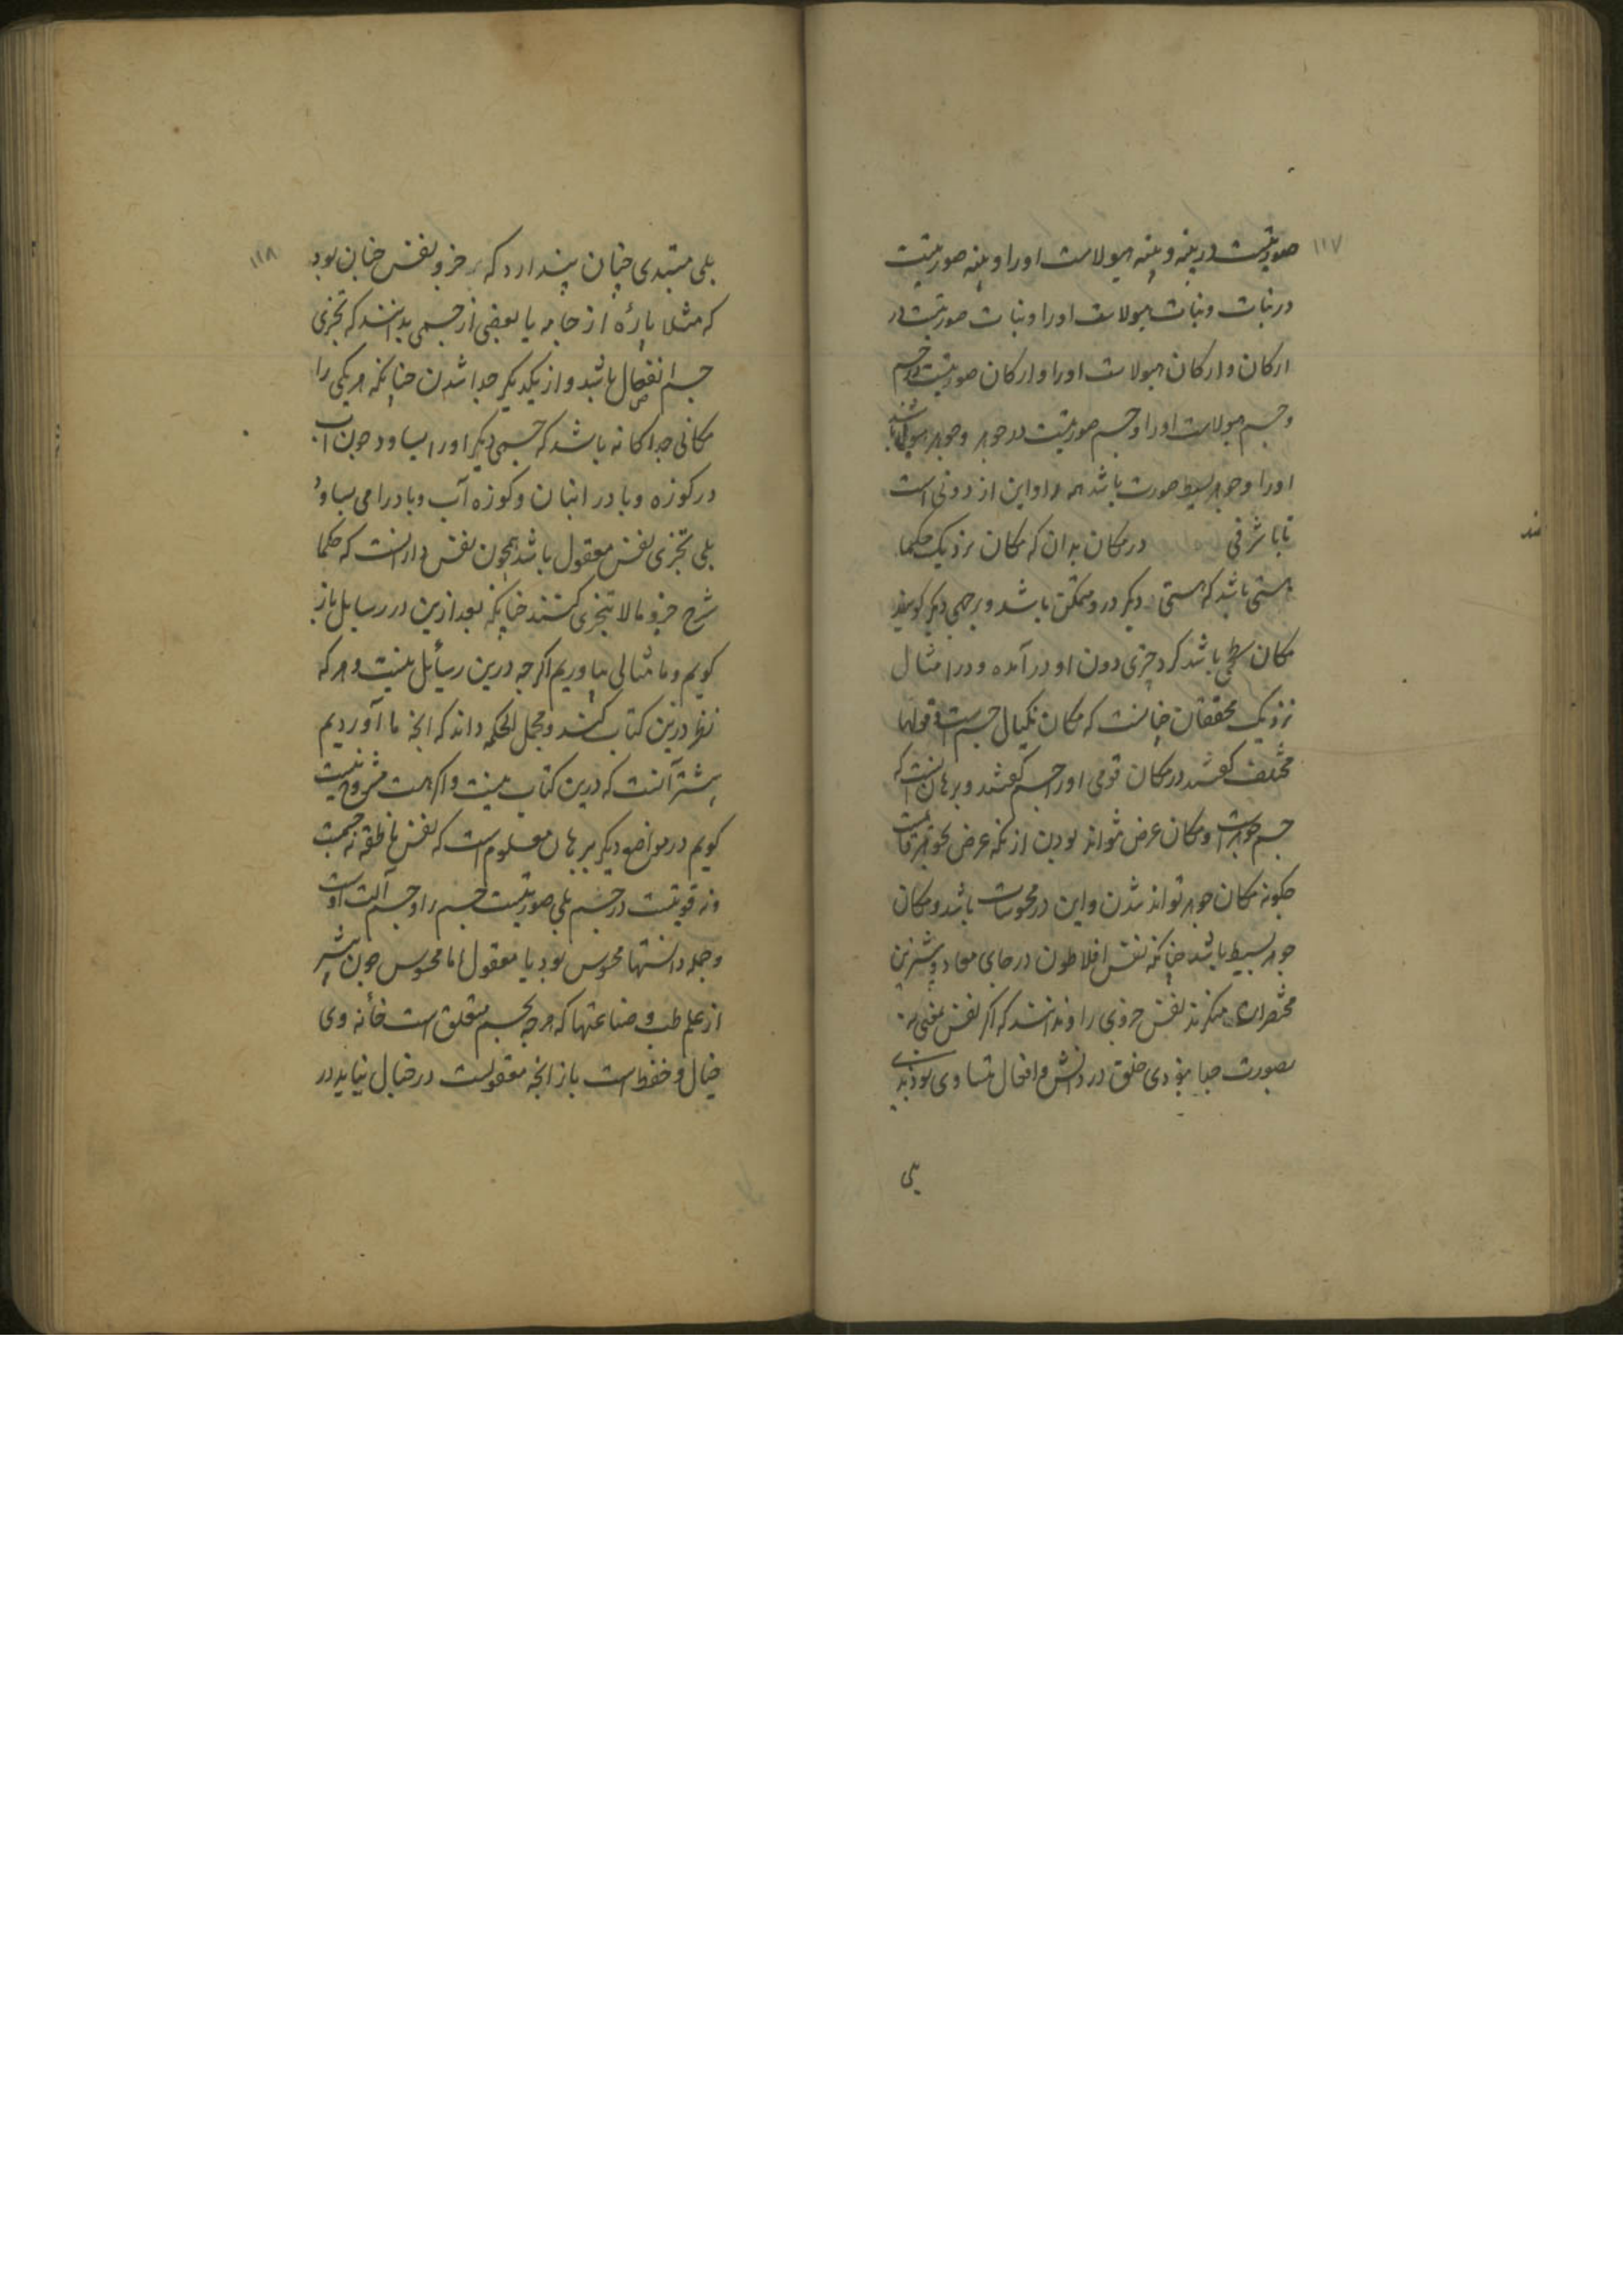 ۱۱۷
صورتیست در پنبه و پنبه هیولاست اورا و پنبه صورتیست
در نبات و نبات هیولاست اورا و نبات صورتیست در
ارکان و ارکان هیولاست اورا و ارکان صورتیست در جسم
و جسم هیولاست اورا و جسم صورتیست در جوهر و جوهر هیولی باشد
اورا و جوهر بسیط صورت باشد همه را و این از دونی است
تا با شرفی در مکان بدان که مکان نزدیک حکما
هستی باشد که هستی دیگر درو متمکن باشد و برخی دیگر گویند
مکان سطحی باشد گرد چیزی دون او در آمده و در امثال
نزدیک محققان چنانست که مکان نکیال جسم است و قولها
مختلف گفتند در مکان قومی اورا جسم گفتند و برهان اینست که
جسم جوهر است و مکان عرض نتواند بودن از آنکه عرض بجوهر قایمست
چگونه مکان جوهر تواند شدن و این در محسوسات باشد و مکان
جوهر بسیط باشد چنانکه نفس افلاطون در جای معاد و بیشترین
مختصران منکرند نفس جزوی را و ندانند که اگر نفس
بصورت جدا نبودی خلق در دانش و افعال متساوی بودندی
بلی
۱۱۸
بلی مبتدی چنان پندارد که جزو نفس چنان بود
که مثلا پاره از جامه یا بعضی از جسمی بدانند که تجزی
جسم انفصال باشد و از یکدیگر جدا شدن چنانکه هر یکی را
مکانی جداگانه باشد که جسمی دیگر اورا بساود چون آب
در کوزه و باد در انبان و کوزه آب و باد را می بساود
بلی تجزی نفس معقول باشد همچون نفس و ازینست که حکما
شرح جزو ما لا یتجزی گفتند چنانکه بعد ازین در رسایل باز
گویم و ما مثالی بیاوریم اگرچه درین رسایل نیست و هرکه
نظر درین کتاب کند و مجمل الحکمه داند که انچه ما آوردیم
بیشتر آنست که درین کتاب نیست و اگر هست مشروح نیست
گویم در مواضع دیگر ببرهان معلوم است که نفس ناطقه نه جسمست
و نه قوتیست در جسم بلی صورتیست جسم را و جسم آلت اوست
و جمله دانستنها محسوس بود یا معقول اما محسوس چون بیشتر
از علم طب و صناعتها که هرچه بجسم متعلق است خانه وی
خیال و حفظ است باز انچه معقولست در خیال نیاید در